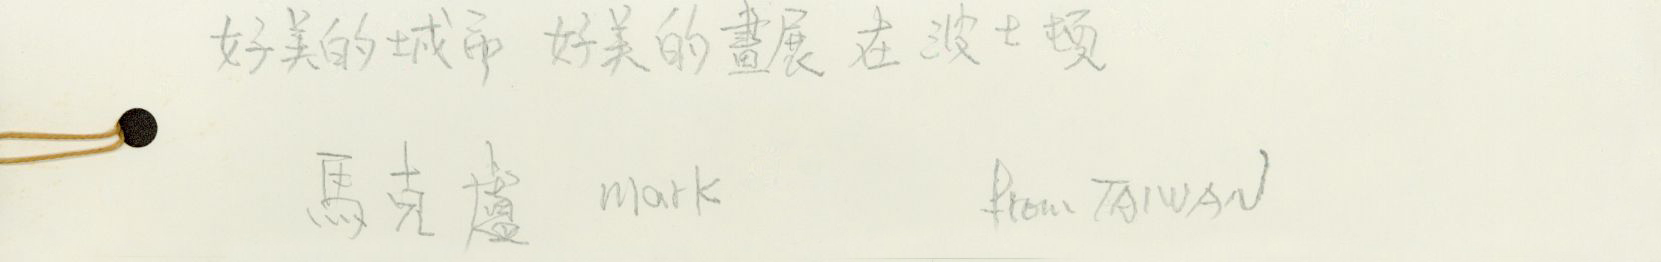 好美的城市 好美的畫展 在波士頓
馬克盧 mark from TAIWAN